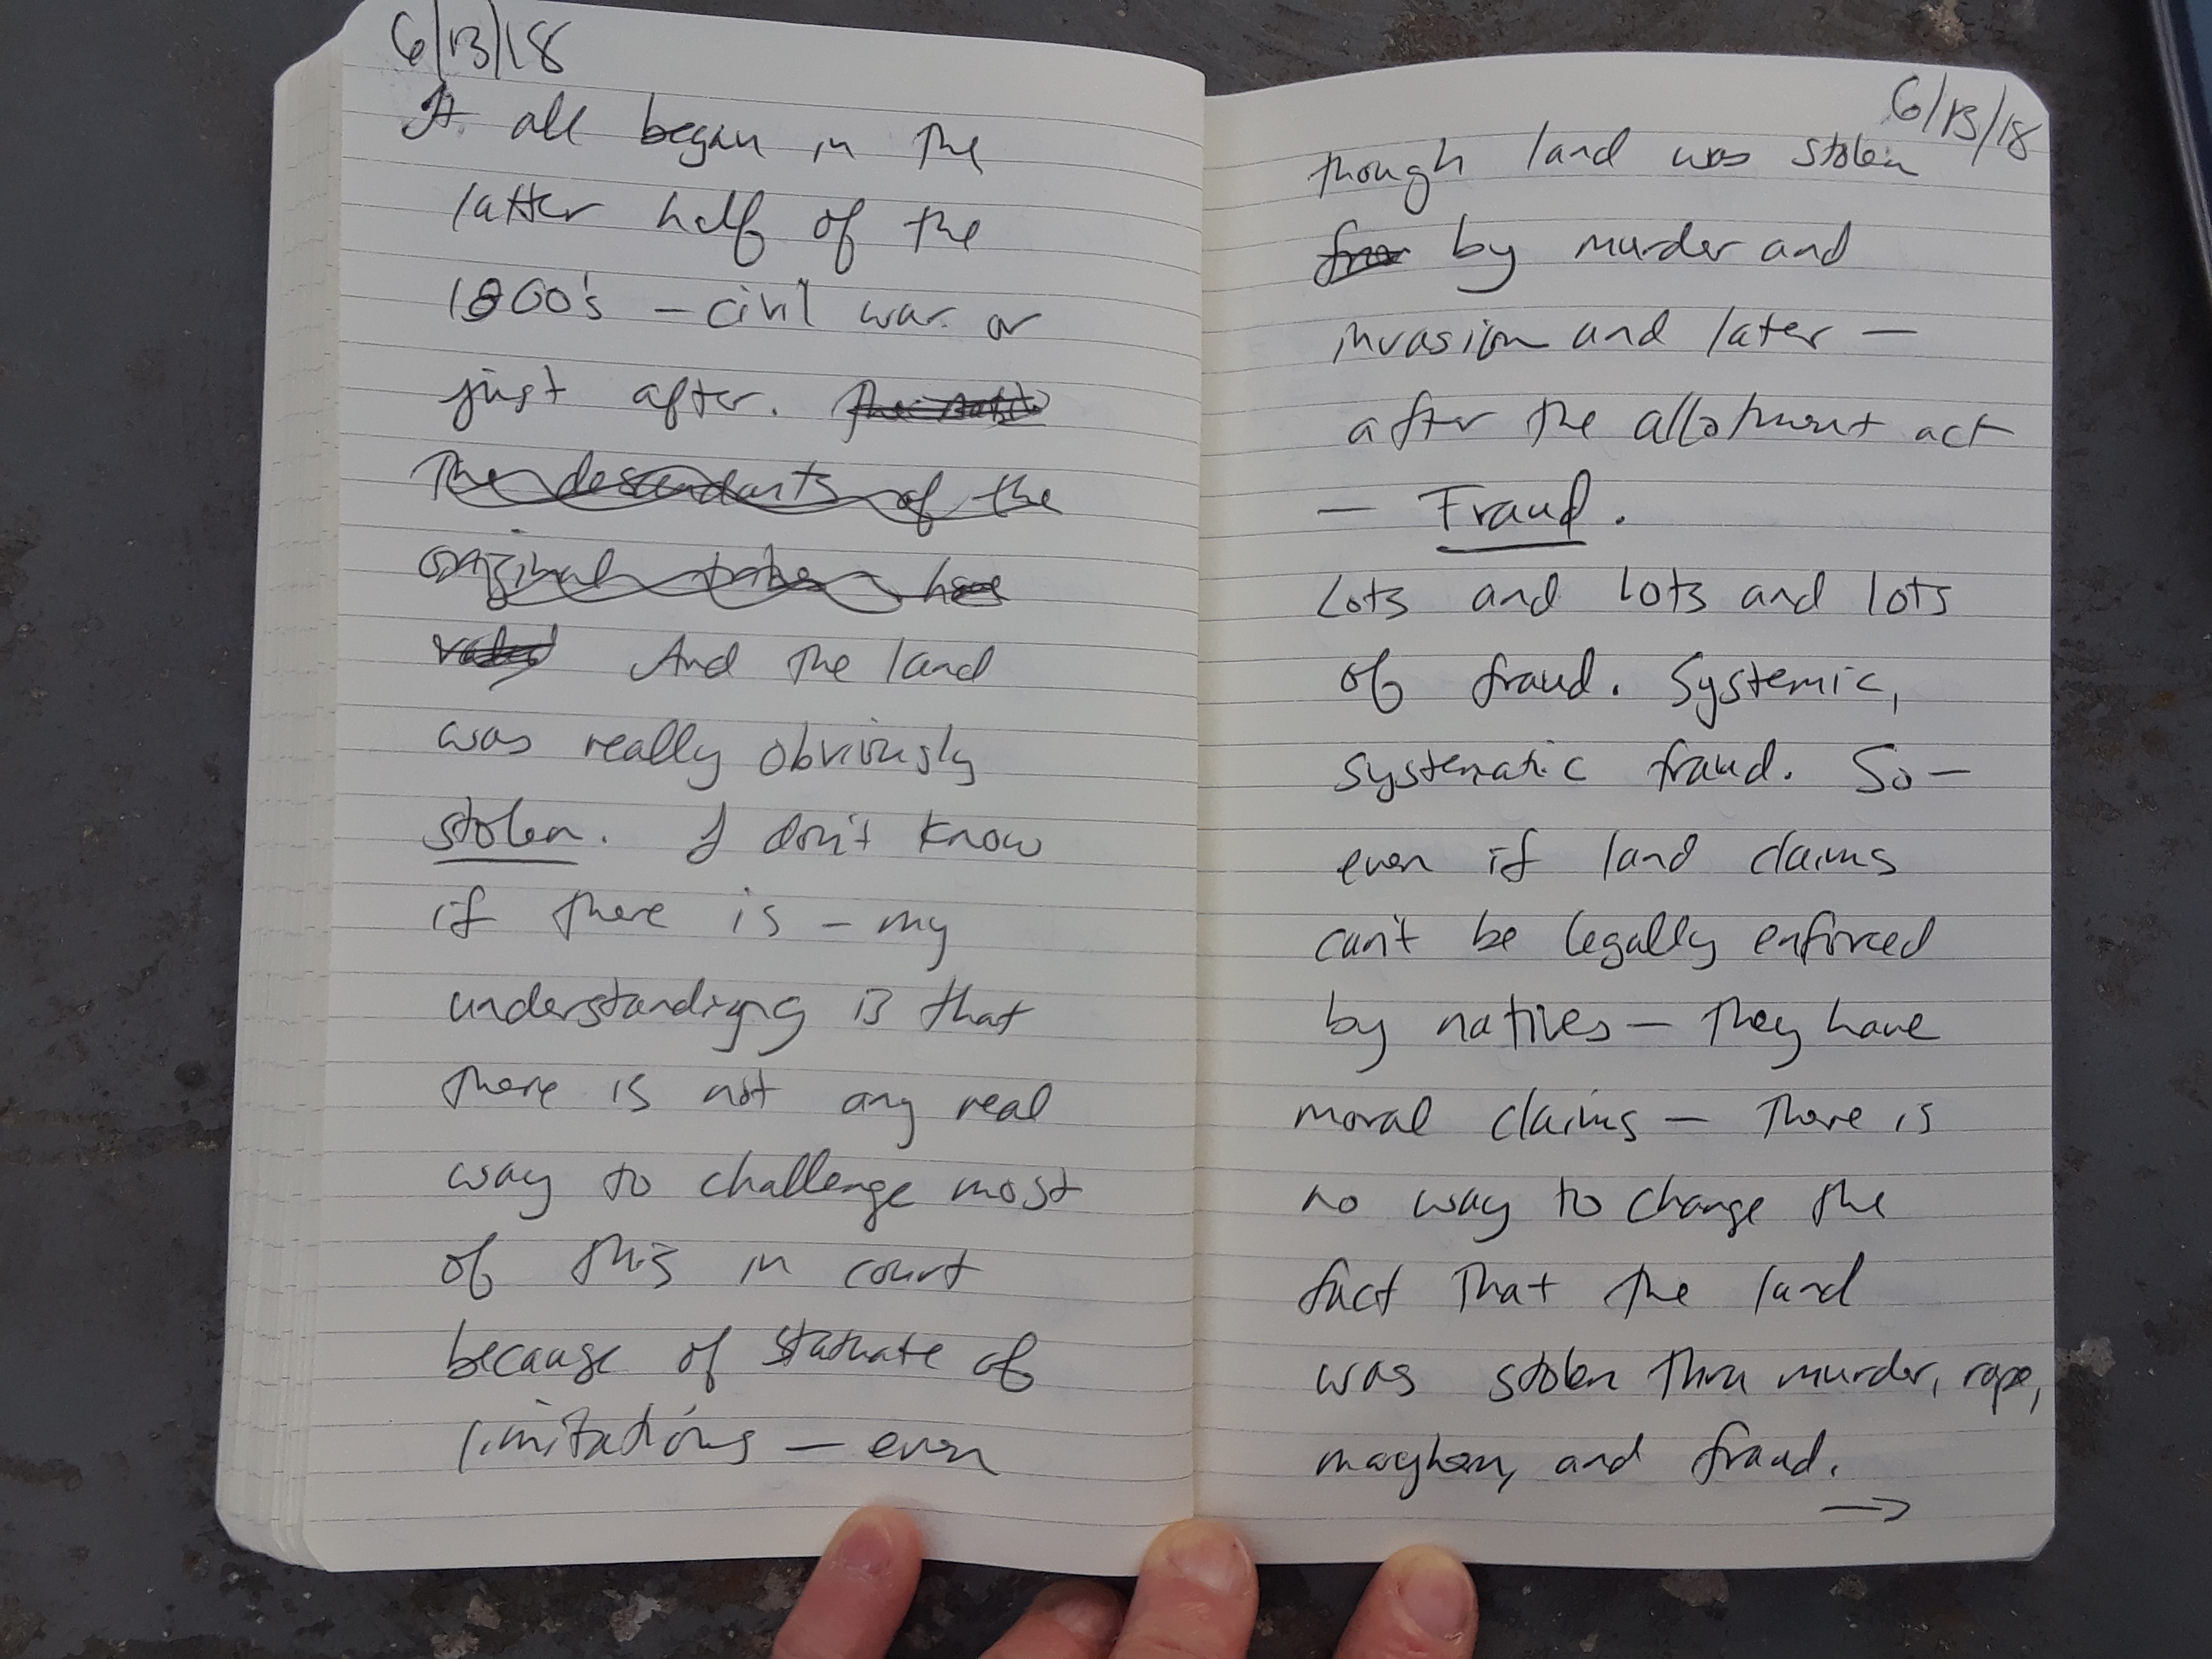 6/13/18
It all began in the
latter half of the
1800's – civil war or
just after.
The descendants of the
original
And the land
was really obviously
stolen. I don't know
if there is – my
understandigng is that
there is not any real
way to challenge most
of this in court
because of statuate of
limitations – even
6/13/18
though land was stolen
by murder and
invasion and later –
after the allotment act
– Fraud.
Lots and lots and lots
of fraud. Systemic,
systematic fraud. So –
even if land claims
can't be legally enforced
by natives – they have
moral claims – there is
no way to change the
fact that the land
was stolen thru murder, rape,
mayhem, and fraud.
→